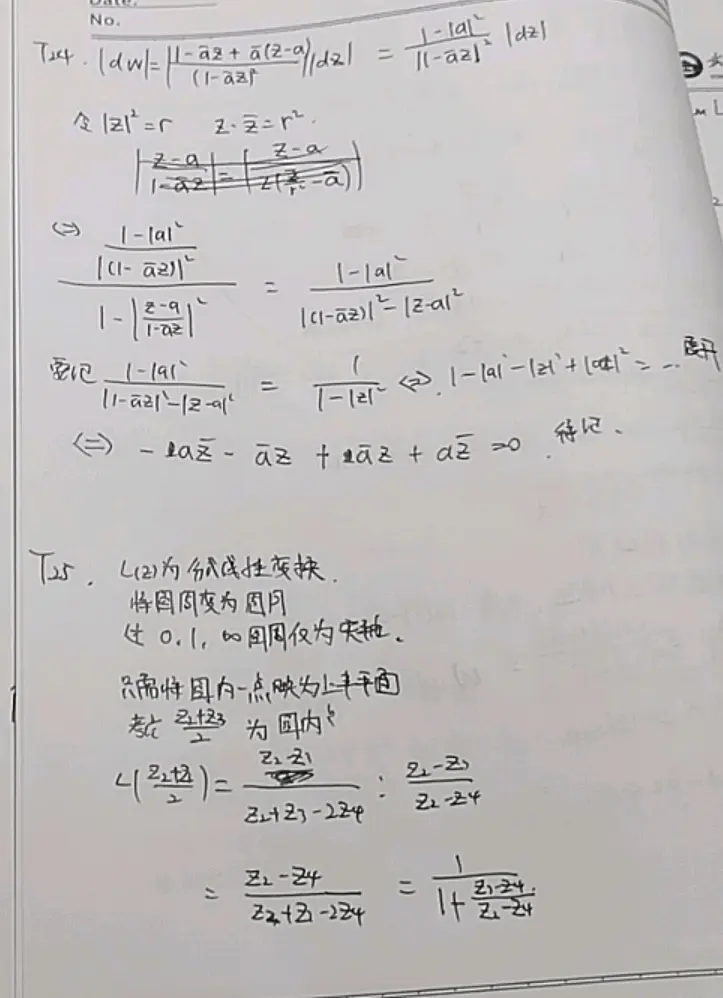 No.
T24. |dw| = |(1-āz + ā(z-a))/(1-āz)²| |dz| = (1-|a|²)/|1-āz|² |dz|
令 |z|² = r  z·z̄ = r².
⇔ ((1-|a|²)/|(1-āz)|²)/(1-|(z-a)/(1-āz)|²) = (1-|a|²)/(|(1-āz)|²-|z-a|²)
要记 (1-|a|²)/(|1-āz|²-|z-a|²) = 1/(1-|z|²) ⇔ 1-|a|²-|z|²+|az|² = … 展开
⇔ -az̄ - āz + āz + az̄ = 0. 得记.
T25. L(z)为分式线性变换.
将圆周变为圆周
过 0, 1, ∞ 圆周仅为实轴.
只需将圆内一点映为上半平面
考虑 (z₂+z₃)/2 为圆内点
L((z₂+z₃)/2) = (z₂-z₃)/(z₂+z₃-2z₄) : (z₂-z₃)/(z₂-z₄)
= (z₂-z₄)/(z₂+z₃-2z₄) = 1/(1+(z₃-z₄)/(z₂-z₄))